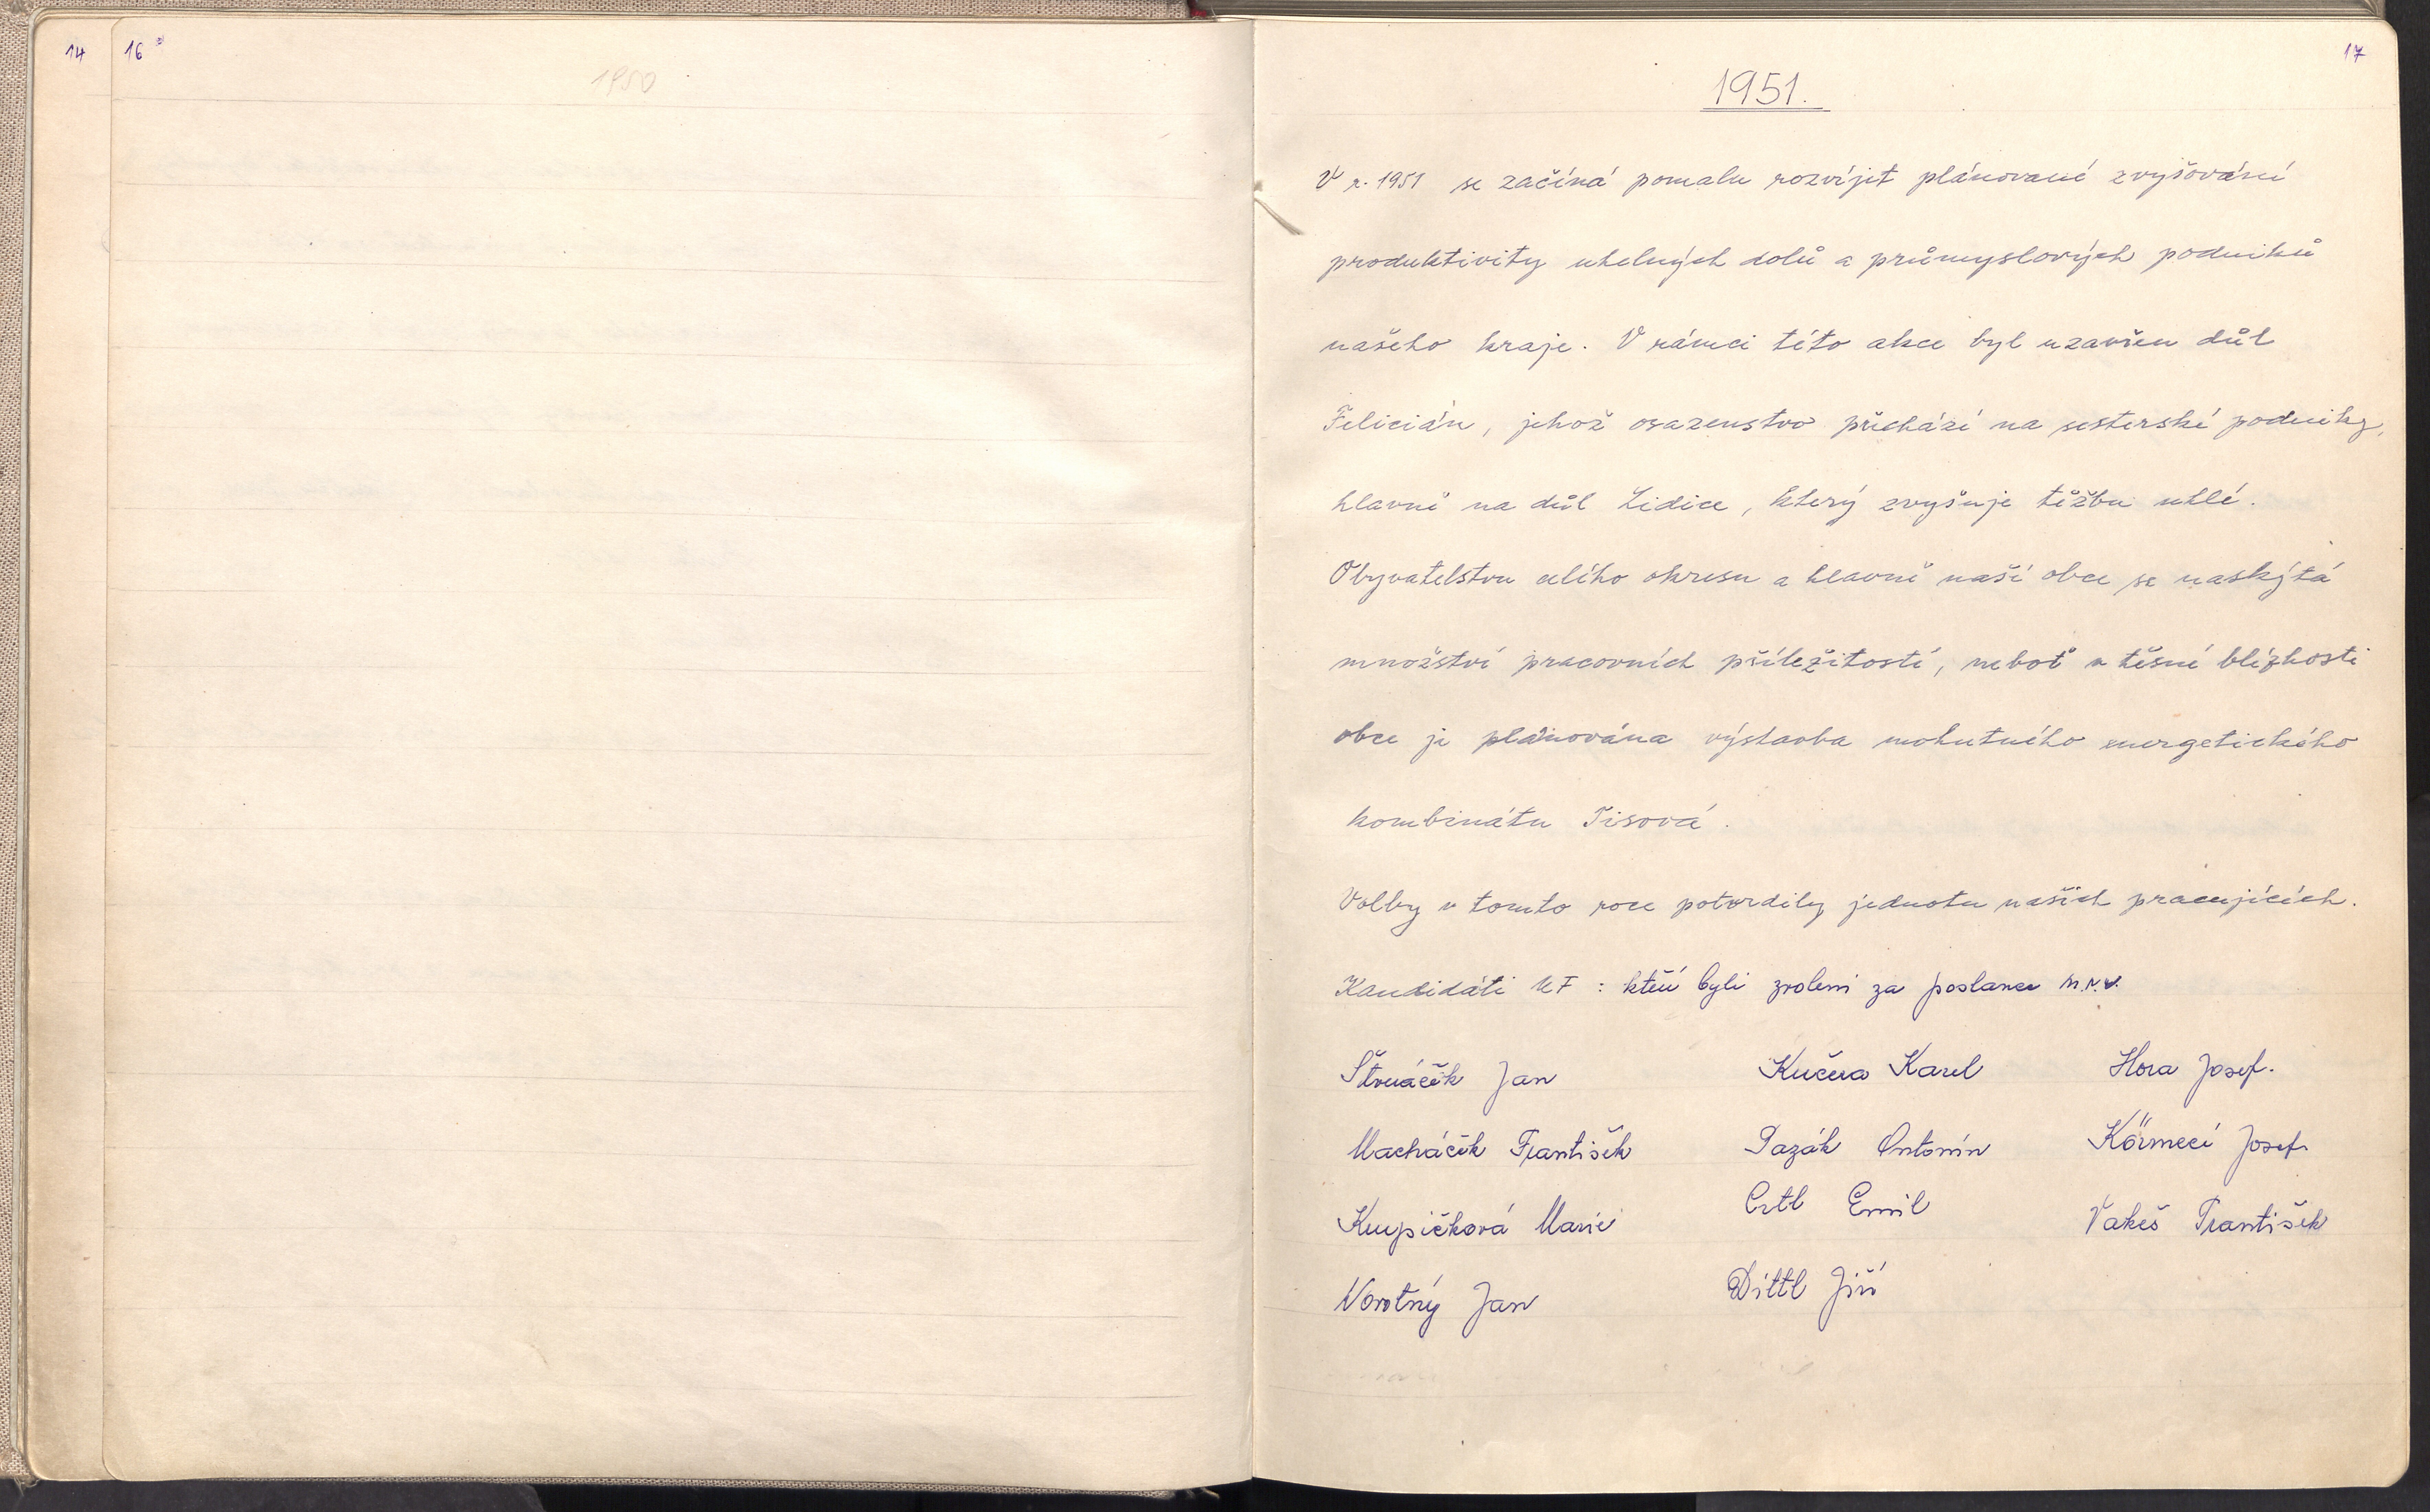 14
16
1950
17
1951.
V r. 1951 se začíná pomalu rozvíjet plánované zvyšování
produktivity uhelných dolů a průmyslových podniků
našeho kraje. V rámci této akce byl uzavřen důl
Felicián, jehož osazenstvo přichází na sesterské podniky,
hlavně na důl Lidice, který zvyšuje těžbu uhlí.
Obyvatelstvu celého okresu a hlavně naší obce se naskýtá
množství pracovních příležitostí, neboť v těsné blízkosti
obce je plánována výstavba mohutného energetického
kombinátu Tisová.
Volby v tomto roce potvrdily jednotu našich pracujících.
Kandidáti NF : kteří byli zvoleni za poslance M.N.V.
Jan Kučera Karel Hora Josef.
Macháček František Pazák Antonín Körmeci Josef
Krupičková Marie Ertl Emil Vakeš František
Novotný Jan Dittl Jiří